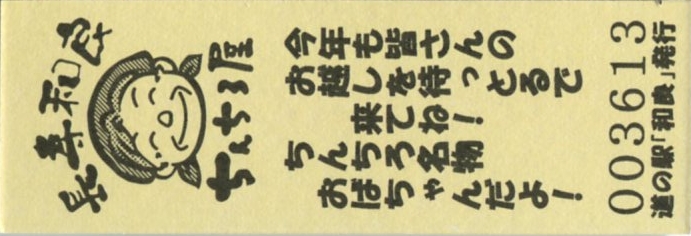 長寿和良
ちんちろ屋
今年も皆さんの
お越しを待っとるで
来てね！
ちんちろ名物
おばちゃんだよ！
003613
道の駅「和良」発行